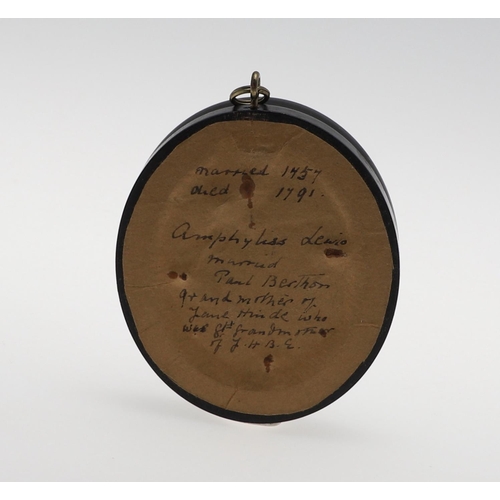 married 1757
died 1791.
Amphyliss Lewis
married
Paul Berthon
grandmother of
Jane Hinde who
was gt grandmother
of J. H. B. E.